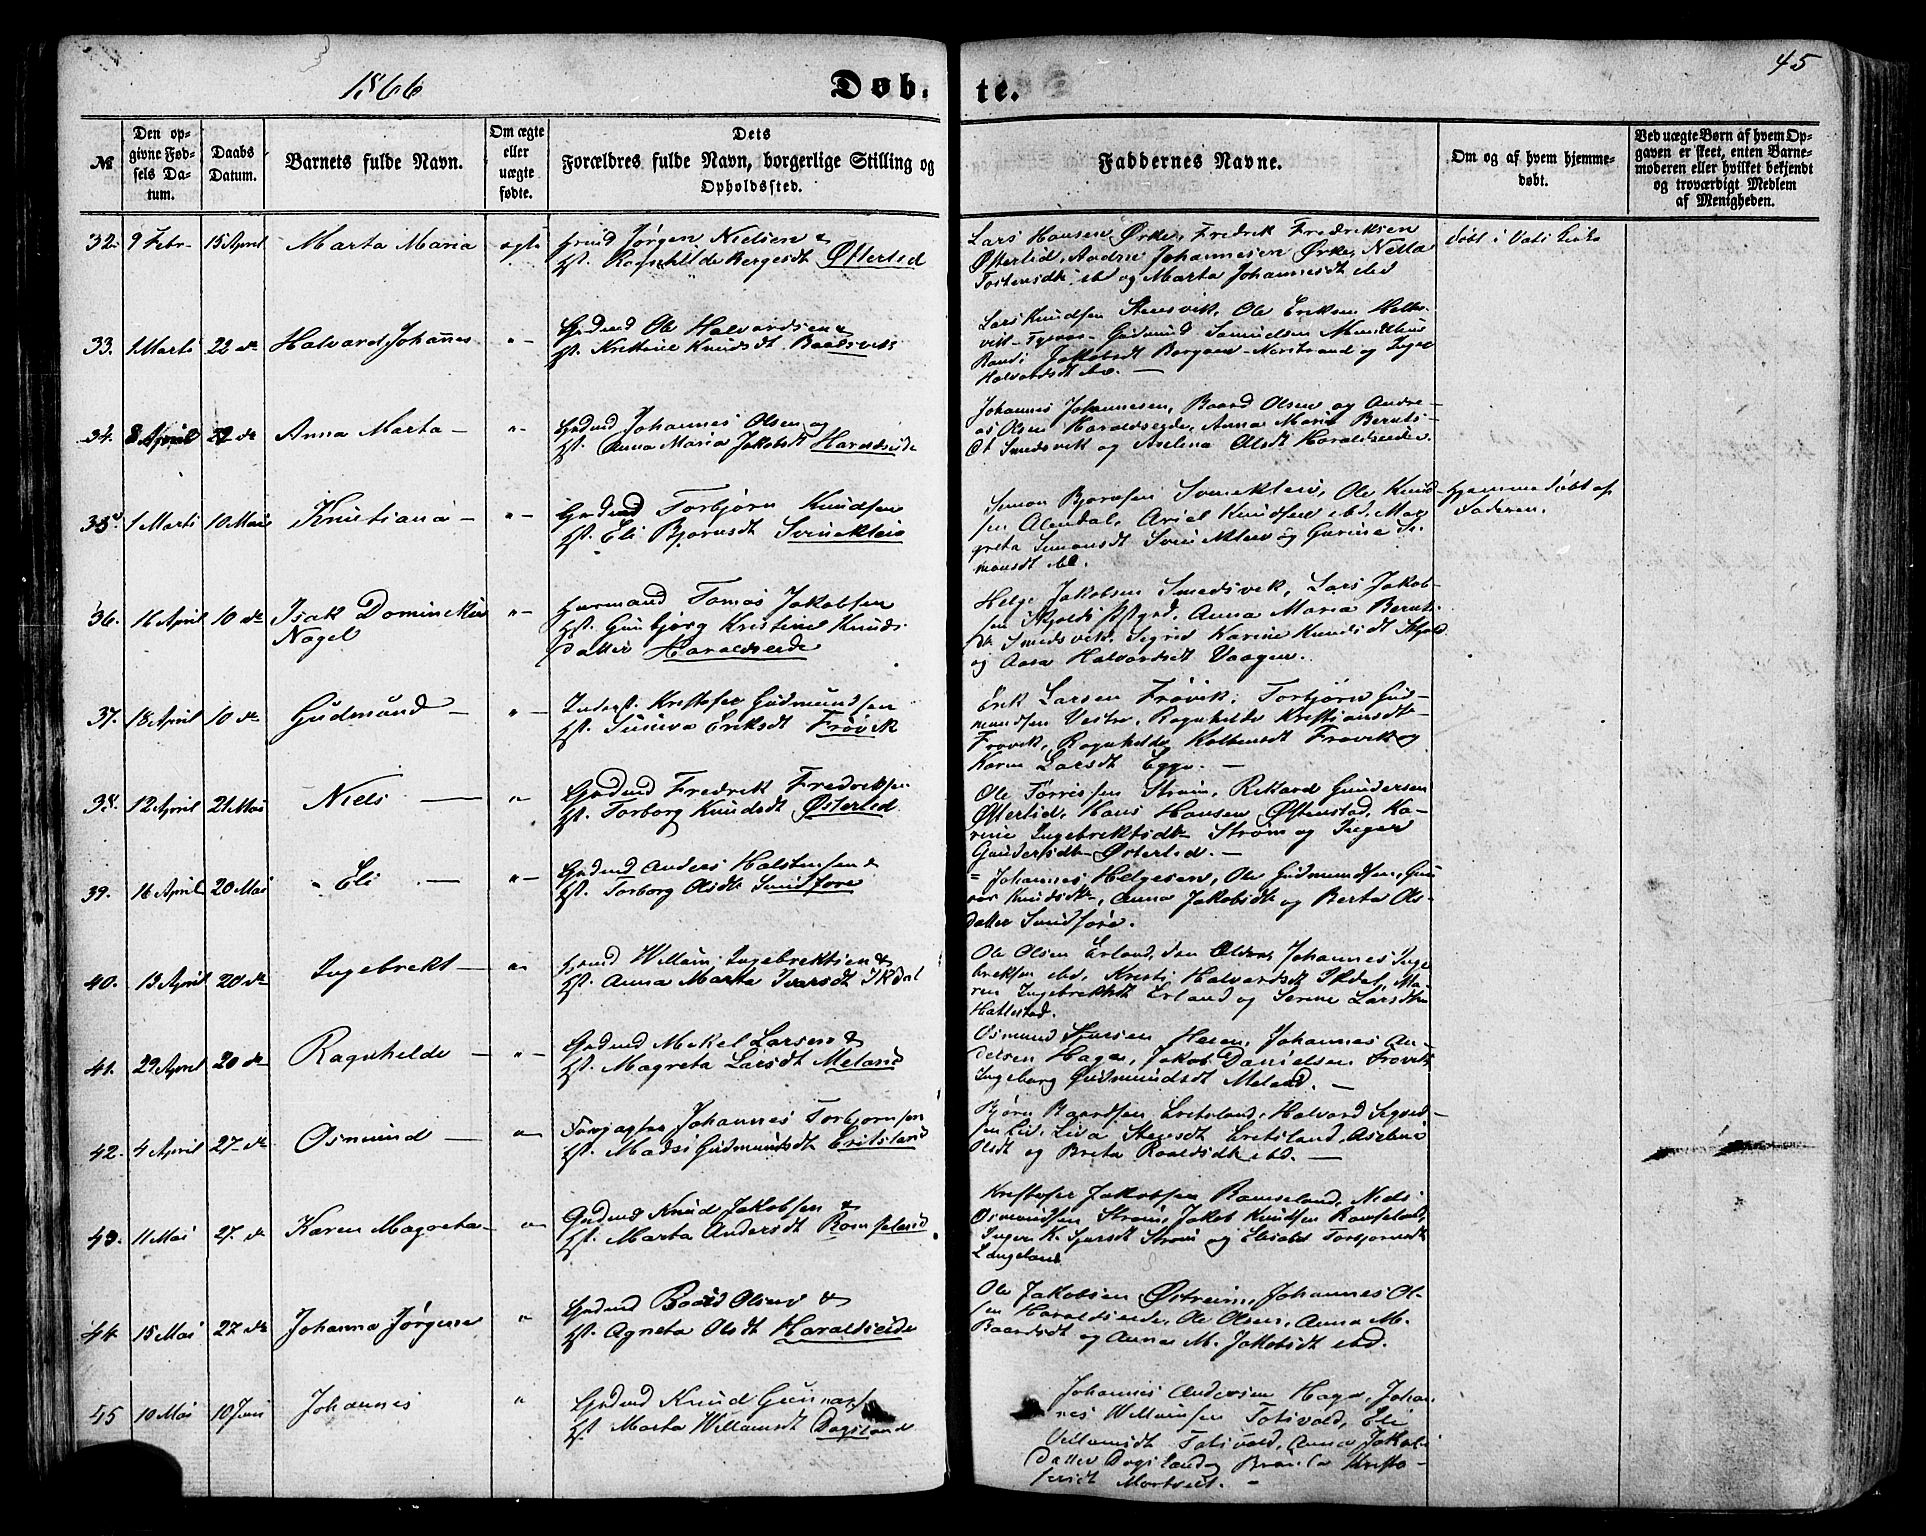 1866
Døb.
te.
45
№
Den opgivne Fødsels Datum.
Daabs Datum.
Barnets fulde Navn.
Om ægte eller uægte fødte.
Dets
Forældres fulde Navn, borgerlige Stilling og
Opholdssted.
Faddernes Navne.
Om og af hvem hjemmedøbt.
Ved uægte Børn af hvem Opgaven er skeet, enten Barnemoderen eller hvilket bekjendt og troværdigt Medlem af Menigheden.
32. 9 Febr. 15 April Marta Maria ægte
Jørgen Nielsen &
Hst. Ragnhilde Bergesdt Østerlid
Lars Hansen Ørke, Fredrik Fredriksen
Østerlid, Andrew Johannesen Ørke, Nella
Tostensdt. ibd og Marta Johannesdt ibd
døbt i Vats Kirke
33. 1 Marts 22 do Halvard Johannes "-
Grdmd Ole Halvardsen &
Hst. Kristine Knudsdt Baadsvik
Lars Knudsen Stensvik, Ole Eriksen
Gudmund Samuelsen
Jakobsdt Borgaas Nerstrand og Inger
Halvardsdt ibd. —
34. 8 April 22 do Anna Marta — "-
Grdmd Johannes Olsen og
Hst. Anna Maria Jakobsdt Haraldseide
Johannes Johannesen, Baard Olsen og Andre-
as Olsen Haraldseide, Anna Maria Bernts-
dt Smedsvik og Aselena Olsdt Haraldseide.
35. 1 Marts 10 Mai Kristiana — "-
Grdmd Torbjørn Knudsen
Hst. Eli Bjørnsdt Svinekleiv
Simon Bjørnsen Svinekleiv, Ole Knud-
sen Alendal, Aviel Knudsen ibd. Ma-
greta Simonsdt Svinekleiv og Gurine Si-
monsdt ibd
Hjemmedøbt af
Faderen.
36. 16 April 10 do Isak Dominekus
Nagel "-
Tomas Jakobsen
Hst. Gunbjørg Kristine Knuds
datter Haraldseide
Helge Jakobsen Smedsvik, Lars Jakob-
sen Skjold Anna Maria Bernts-
dt Smedsvik. Sigrid Karine Knudsdt Skjold
og Aasa Halvardsdt Vaagen.
37. 18 April 10 do Gudmund — "-
Inderst. Kristofer Gudmundsen
Hst. Suneva Eriksdt Frøvik
Erik Larsen Frøvik, Torbjørn Gud-
mundsen Vestre, Ragnhilde Kristiansdt
Frøvik, Ragnhilde Kolbensdt Frøvik og
Karen Larsdt Egge. —
38. 12 April 21 Mai Niels — "
Grdmd Fredrik Fredriksen
Hst. Torborg Knudsdt Østerlid
Ole Torresen Strøm, Rikard Gundersen
Østerlid, Hans Hansen Østenstad, Ka-
rine Ingebrektsdt Strøm og Inger
Gundersdt Østerlid. —
39. 16 April 20 Mai Eli — "-
Grdmd Anders Halstensen &
Hst. Torborg Olsdt Sundføre
Johannes Helgesen, Ole Gudmundsen, Gun-
vor Knudsdt, Anna Jakobsdt og Berta Ols-
datter Sundføre.
40. 13 April 20 do Ingebrekt — "
Grdmd Willam Ingebrektsen &
Hst. Anna Marta Ivarsdt Ikdal
Ole Olsen Erland, den Eldre, Johannes Inge-
brektsen ibd, Kristi Halvardsdt Ikdal, Ma-
ren Ingebrektsdt Erland og Serine Larsdt
Hattestad.
41. 29 April 20 do Ragnhilde — "-
Grdmd Mekel Larsen &
Hst. Magreta Larsdt Meland
Osmund Heien, Johannes An-
dersen Haga, Jakob Danielsen Frøvik
Ingeborg Gudmundsdt Meland. —
42. 4 April 27 do Osmund — "
Forpagter Johannes Torbjørnsen
Hst. Madsi Gudmundsdt Eritsland
Bjørn Baardsen Eritsland, Halvard
Lid, Liva Stensdt Eritsland, Aselene
Olsdt og Breta Roaldsdt ibd. —
43. 11 Mai 27 do Karen Magreta "
Grdmd Knud Jakobsen &
Hst. Marta Andersdt Romseland
Kristofer Jakobsen Ramseland, Niels
Osmundsen Strøm, Jakob Knudsen Ramseland,
Inger K. Strøm og Elisabet Torbjørnsdt
Langeland
44. 15 Mai 27 do Johanna Jørgine "
Grdmd Baard Olsen &
Hst. Agneta Olsdt Haraldseide
Ole Jakobsen Østreim, Johannes Ol-
sen Haraldseide, Ole Olsen, Anna M.
Baardsdt og Anna M. Jakobsdt ibd.
45 10 Mai 10 Juni Johannes "
Grdmd Knud Gunnars
Hst. Marta Willamsdt Dagsland
Johannes Andersen Haga, Johan-
nes Willamsen Tatsvold, Eli
Willamsdt Tatsvold, Anna Jakobs
datter Dagsland og Kristo-
fersdt Mortveit. —